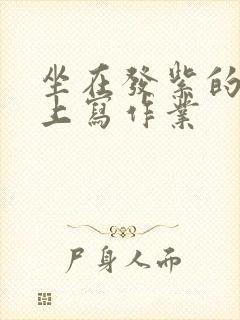 坐在發紫的
上寫作業
尸身人而